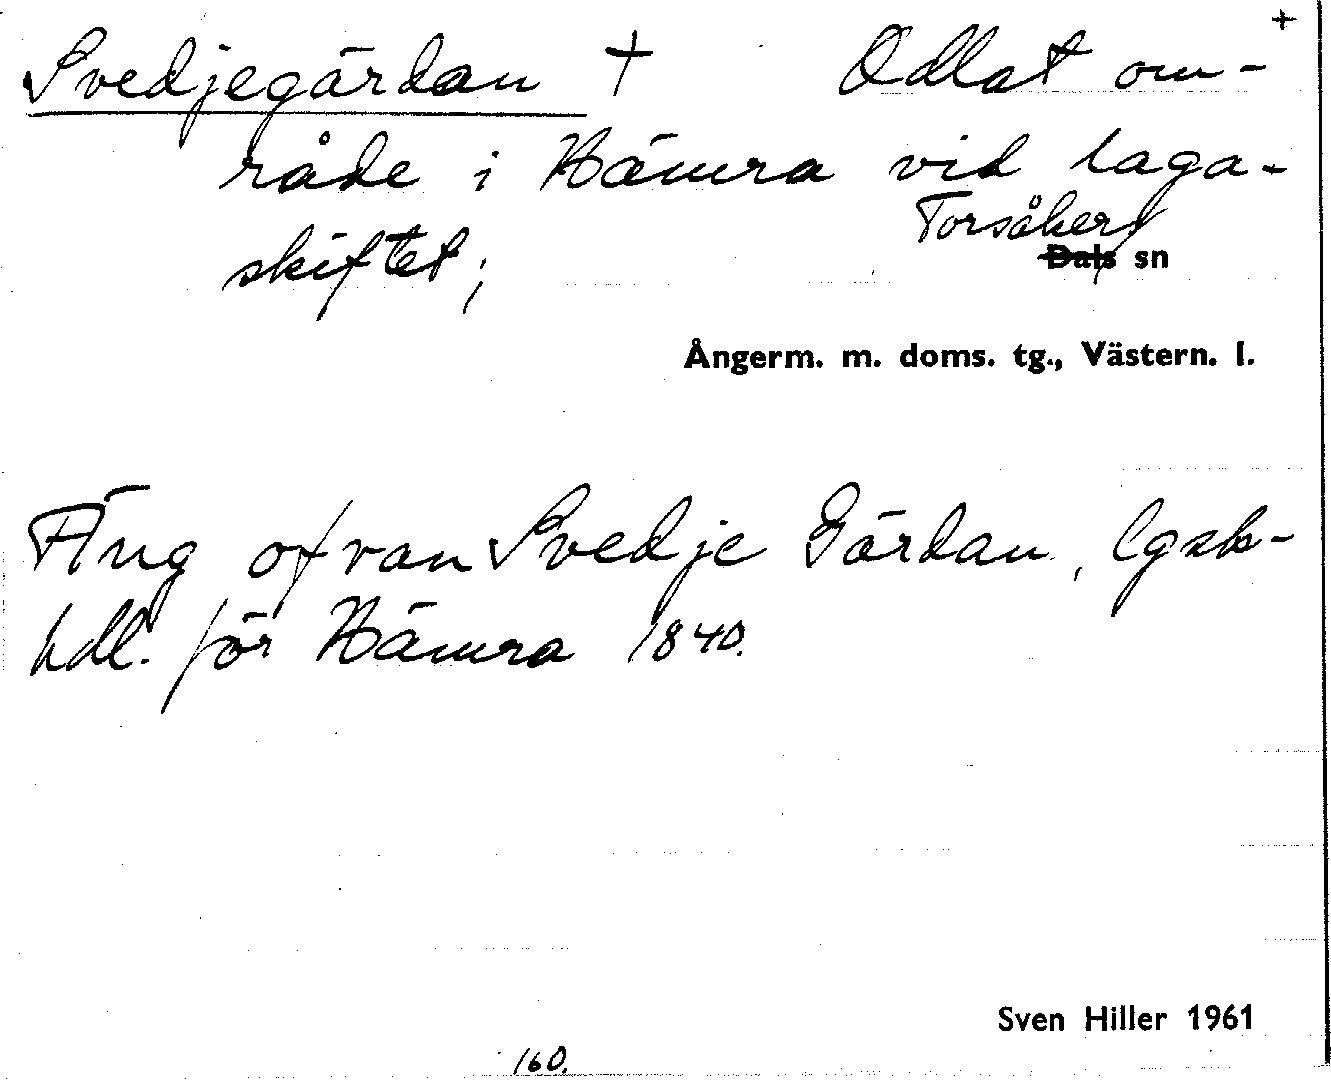 +
Svedjegärdan † Odlat om-
råde i Hämra vid laga-
skiftet;
Torsåkers
Dals sn
Ångerm. m. doms. tg., Västern. l.
Äng ofvan Svedje Gärdan, lgsk-
hdl. för Hämra 1840.
Sven Hiller 1961
160.